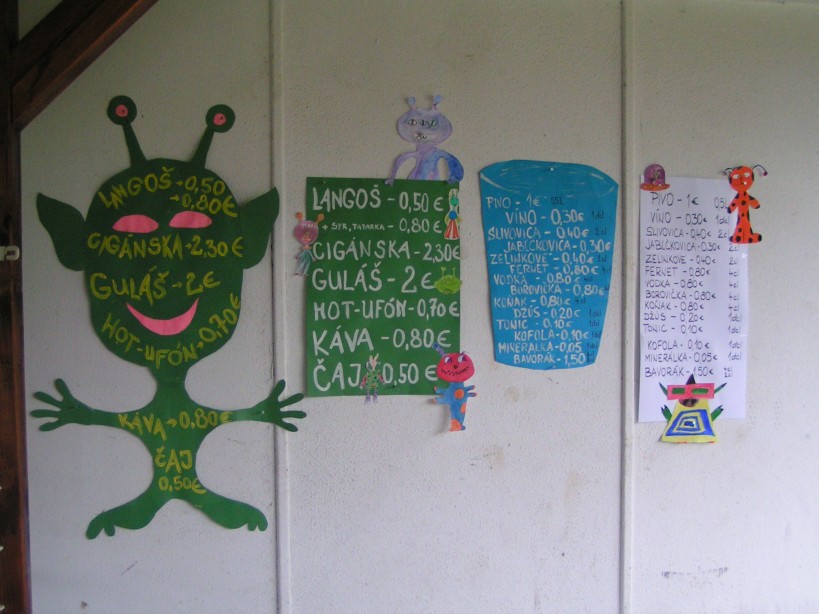 LANGOŠ - 0,50
- 0,80€
CIGÁNSKA - 2,30€
GULÁŠ - 2€
HOT-UFÓN - 0,70€
KÁVA - 0,80€
ČAJ
0,50€
LANGOŠ - 0,50€
+ SYR, TATARKA - 0,80€
CIGÁNSKA - 2,30€
GULÁŠ - 2€
HOT-UFÓN - 0,70€
KÁVA - 0,80€
ČAJ 0,50€
PIVO - 1€ 0,5L
VÍNO - 0,30€ 1dcl
SLIVOVICA - 0,40€ 2cl
JABĹČKOVICA - 0,30€
ZELINKOVÉ - 0,40€
FERNET - 0,80€
VODKA - 0,80€
BOROVIČKA - 0,80€
KOŇAK - 0,80€
DŽÚS - 0,20€
TONIC - 0,10€
KOFOLA - 0,10€
MINERÁLKA - 0,05
BAVORÁK - 1,50
PIVO - 1€ 0,5L
VÍNO - 0,30€ 1dcl
SLIVOVICA - 0,40€ 2cl
JABĹČKOVICA - 0,30€ 2cl
ZELINKOVÉ - 0,40€ 2cl
FERNET - 0,80€ 4cl
VODKA - 0,80€
BOROVIČKA - 0,80€ 4cl
KOŇAK - 0,80€
DŽÚS - 0,20€ 1dcl
TONIC - 0,10€ 1dcl
KOFOLA - 0,10€ 1dcl
MINERÁLKA - 0,05€ 1dcl
BAVORÁK - 1,50€